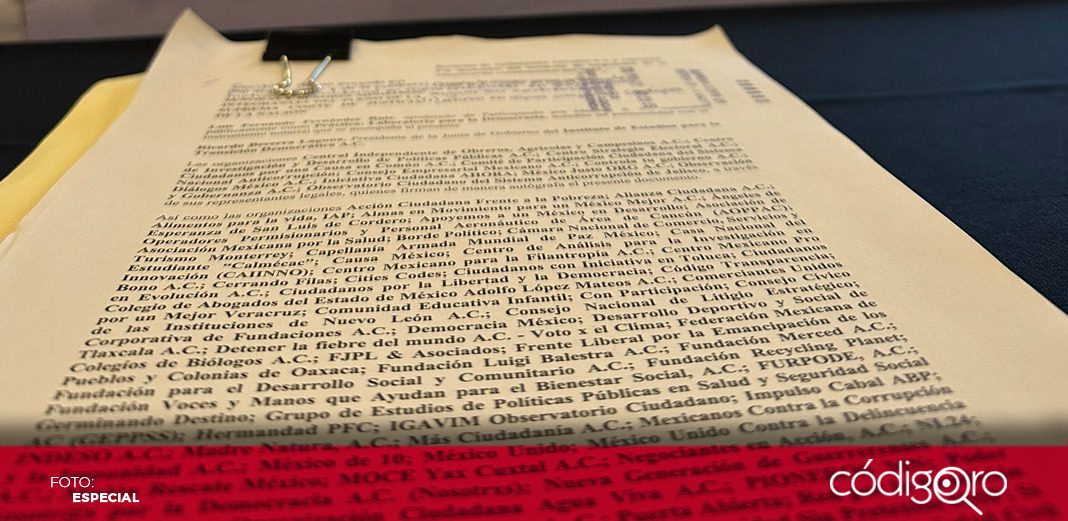 DE LA NACIÓN
Luis Fernando Fernández Ruiz, apoderado de
públicamente como Práctica: Laboratorio para la Democracia,
instrumento notarial que se acompaña al presente
Ricardo Becerra Laguna, Presidente de la Junta de Gobierno del Instituto de Estudios para la
Transición Democrática A.C.
Las organizaciones Central Independiente de Obreros, Agrícolas y Campesinos A.C.; Centro
de Investigación y Desarrollo de Políticas Públicas A.C.; Centro Strategia Electoral A.C.;
Ciudadanos por una Causa en Común A.C.; Comité de Participación Ciudadana del Sistema
Nacional Anticorrupción; Consejo Empresarial Mexicano A.C.; Controla tu gobierno A.C.;
Diálogos México A.C.; Iniciativa Ciudadana AHORA; México Justo ORG A.C.; Observación
y Gobernanza A.C.; Observatorio Ciudadano del Sistema Anticorrupción de Jalisco, a través
de sus representantes legales, quienes firman de manera autógrafa el presente documento.
Así como las organizaciones Acción Ciudadana Frente a la Pobreza; Alianza Ciudadana A.C.,
Alimentos para la vida, IAP; Almas en Movimiento para un México Mejor A.C.; Ángeles de
Esperanza de San Luis de Cordero; Apoyemos a un México en Desarrollo; Asociación de
Operadores Permisionarios y Personal Aeronáutico de Área de Cancún (AOPPAC);
Asociación Mexicana por la Salud; Borde Político; Cámara Nacional de Comercio Servicios y
Turismo Monterrey; Capellanía Armada Mundial de Paz México; Casa Nacional del
Estudiante "Calmécac"; Causa México; Centro de Análisis para la Investigación en
Innovación (CAIINNO); Centro Mexicano para la Filantropía A.C., Centro Mexicano Pro
Bono A.C.; Cerrando Filas; Cities Codes; Ciudadanos con Iniciativa en Toluca; Ciudadanos
en Evolución A.C.; Ciudadanos por la Libertad y la Democracia; Código Transparencia;
Colegio de Abogados del Estado de México Adolfo López Mateos A.C.; Comerciantes Unidos
por un Mejor Veracruz; Comunidad Educativa Infantil; Con Participación; Consejo Cívico
de las Instituciones de Nuevo León A.C.; Consejo Nacional de Litigio Estratégico;
Corporativa de Fundaciones A.C.; Democracia México; Desarrollo Deportivo y Social de
Tlaxcala A.C.; Detener la fiebre del mundo A.C. - Voto x el Clima; Federación Mexicana de
Colegios de Biólogos A.C.; FJPL & Asociados; Frente Liberal por la Emancipación de los
Pueblos y Colonias de Oaxaca; Fundación Luigi Balestra A.C.; Fundación Merced A.C.;
Fundación para el Desarrollo Social y Comunitario A.C.; Fundación Recycling Planet;
Fundación Voces y Manos que Ayudan para el Bienestar Social, A.C.; FURPODE, A.C.;
Germinando Destino; Grupo de Estudios de Políticas Públicas en Salud y Seguridad Social
AC (GEPPSS); Hermandad PFC; IGAVIM Observatorio Ciudadano; Impulso Cabal ABP;
INDESO A.C.; Madre Natura, A.C.; Más Ciudadanía A.C.; Mexicanos Contra la Corrupción
e Impunidad A.C.; México de 10; México Unido; México Unido Contra la Delincuencia
A.C.; Rescate México; MOCE Yax Cuxtal A.C.; Negociantes en Acción, A.C.; NL24;
por la Democracia A.C. (Nosotrxs); Nueva Generación de Guerrerenses A.C.;
Ciudadana Agua Viva A.C.; Poder
Puerta Abierta;
FOTO:
ESPECIAL
códigoqro